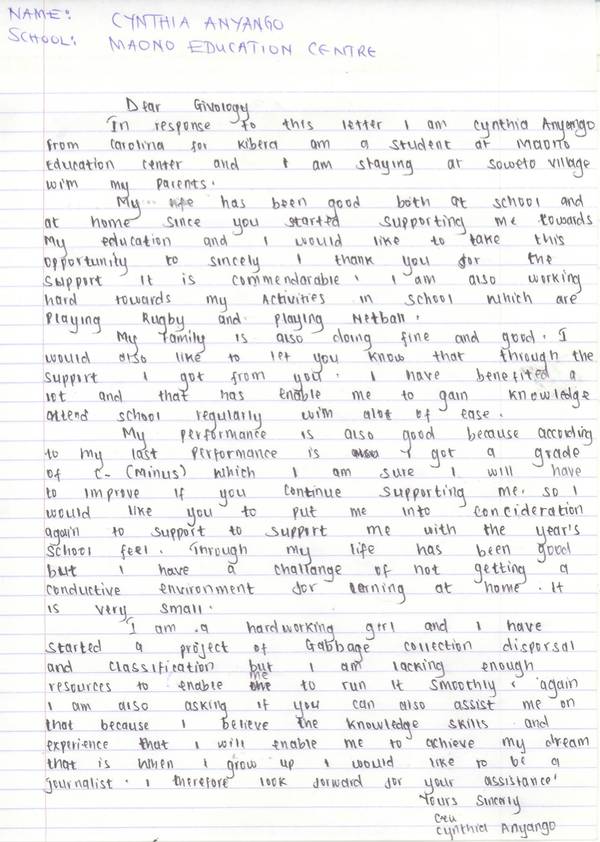 NAME: CYNTHIA ANYANGO
SCHOOL: MAONO EDUCATION CENTRE
Dear Givology
In response to this letter I am Cynthia Anyango
from Carolina for Kibera am a student at MAONO
Education center and I am staying at soweto village
with my parents.
My life has been good both at school and
at home since you started supporting me towards
My education and I would like to take this
opportunity to sincely I thank you for the
support it is commendarable. I am also working
hard towards my Activities in school which are
Playing Rugby and playing Netball.
My Family is also doing fine and good. I
would also like to let you know that through the
support I got from you. I have benefited a
lot and that has enable me to gain knowledge
attend school regularly with alot of ease.
My performance is also good because according
to my last performance is I got a grade
of C- (Minus) which I am sure I will have
to improve if you continue supporting me. so I
would like you to put me into concideration
again to support to support me with the year's
school feel. Through my life has been good
but I have a challange of not getting a
conductive environment for lerning at home. It
is very small.
I am a hardworking girl and I have
started a project of Gabbage collection disporsal
and classification but I am lacking enough
resources to enable me to run it smoothly. again
I am also asking if you can also assist me on
that because I believe the knowledge skills and
experience that I will enable me to achieve my dream
that is when I grow up I would like to be a
journalist. I therefore look forward for your assistance'
Yours sincerly
Cynthia Anyango